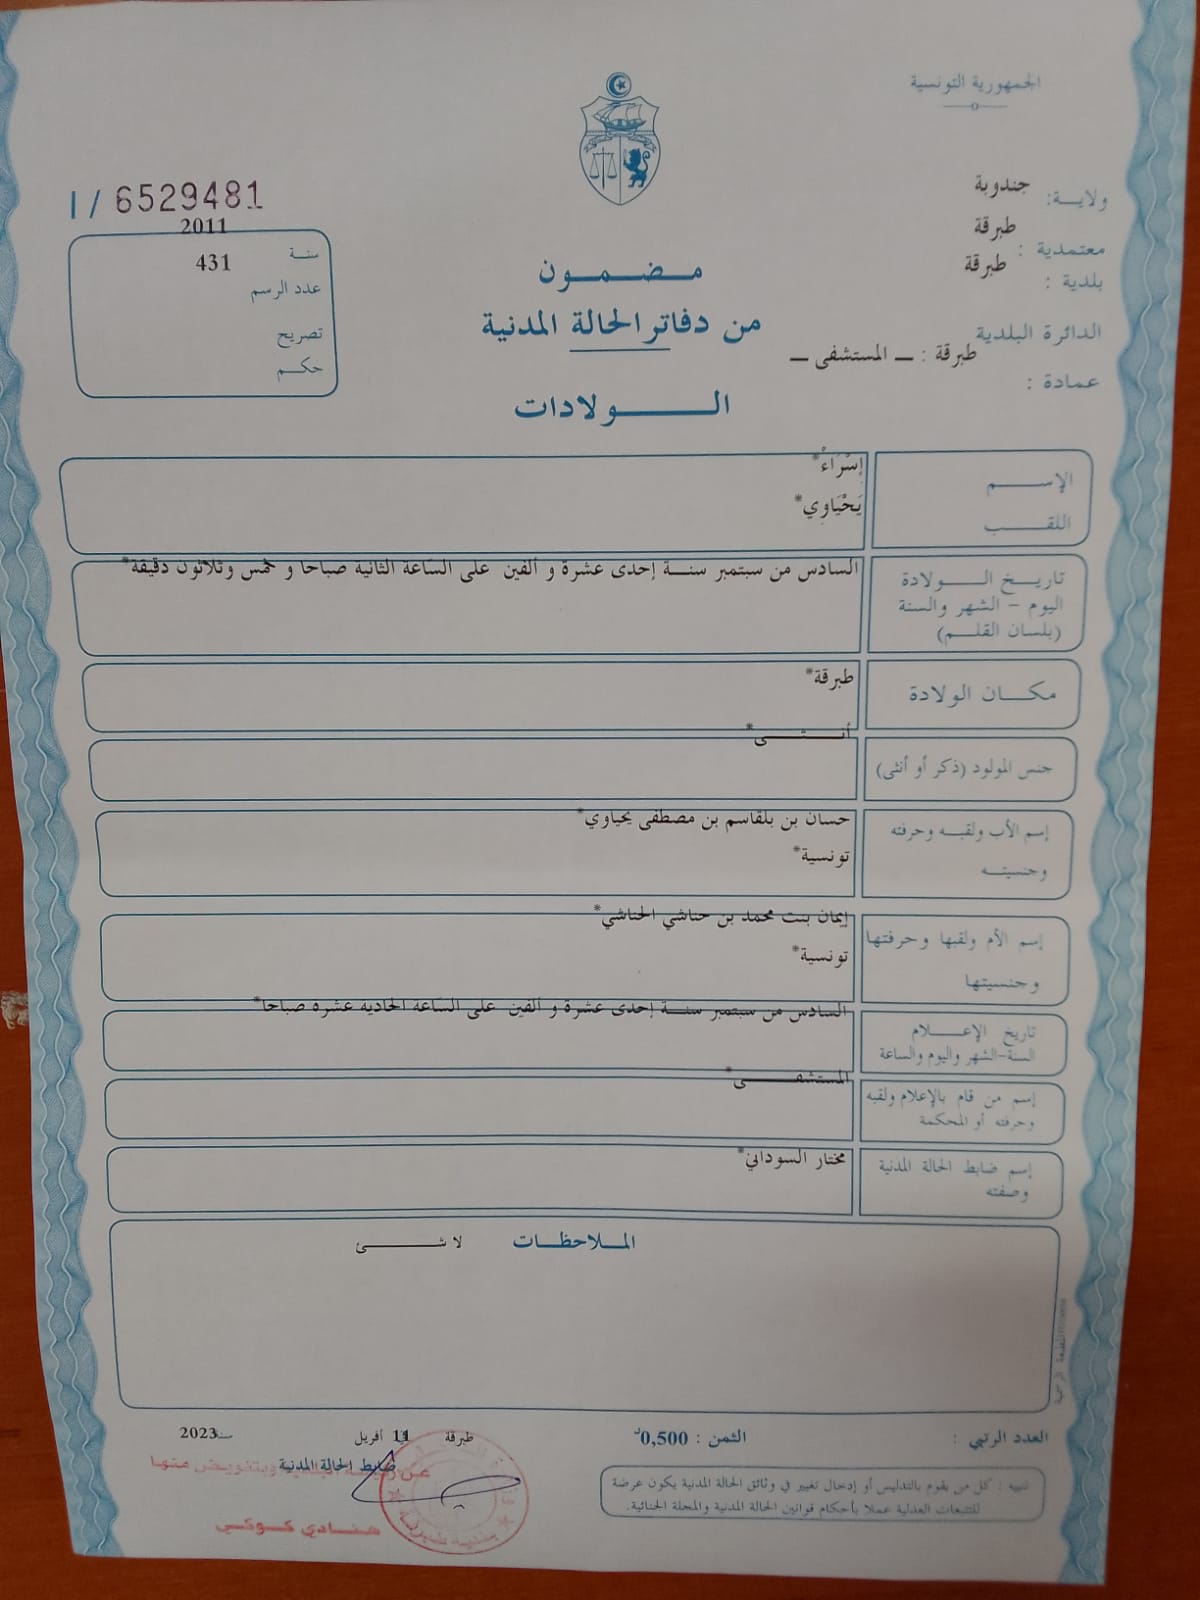 الجمهورية التونسية
ولاية: جندوبة
معتمدية : طبرقة
بلدية : طبرقة
الدائرة البلدية
طبرقة : ـ المستشفى ـ
عمادة :
I / 6529481
سنة 2011
عدد الرسم 431
تصريح
حكم
مضمون
من دفاتر الحالة المدنية
الولادات
الإسم إِسْرَاءْ*
اللقب يَحْيَاوِي*
تاريخ الولادة
اليوم - الشهر والسنة
(بلسان القلم)
السادس من سبتمبر سنة إحدى عشرة و ألفين على الساعة الثانية صباحا و خمس وثلاثون دقيقة*
مكان الولادة طبرقة*
جنس المولود (ذكر أو أنثى) أنثى*
إسم الأب ولقبه وحرفته
وجنسيته
حسان بن بلقاسم بن مصطفى يحياوي*
تونسية*
إسم الأم ولقبها وحرفتها
وجنسيتها
إيمان بنت محمد بن حناشي الحناشي*
تونسية*
تاريخ الإعلام
السنة-الشهر واليوم والساعة
السادس من سبتمبر سنة إحدى عشرة و ألفين على الساعة الحادية عشرة صباحا*
إسم من قام بالإعلام ولقبه
وحرفته أو المحكمة
المستشفى*
إسم ضابط الحالة المدنية
وصفته
مختار السوداني*
الملاحظات لا شئ
العدد الرتبي :
الثمن : 0,500د
طبرقة في 11 أفريل سنة 2023
ضابط الحالة المدنية
هنادي كوكي
بلدية طبرقة
تنبيه : كل من يقوم بالتدليس أو إدخال تغيير في وثائق الحالة المدنية يكون عرضة
للتتبعات العدلية عملا بأحكام قوانين الحالة المدنية والمجلة الجنائية.